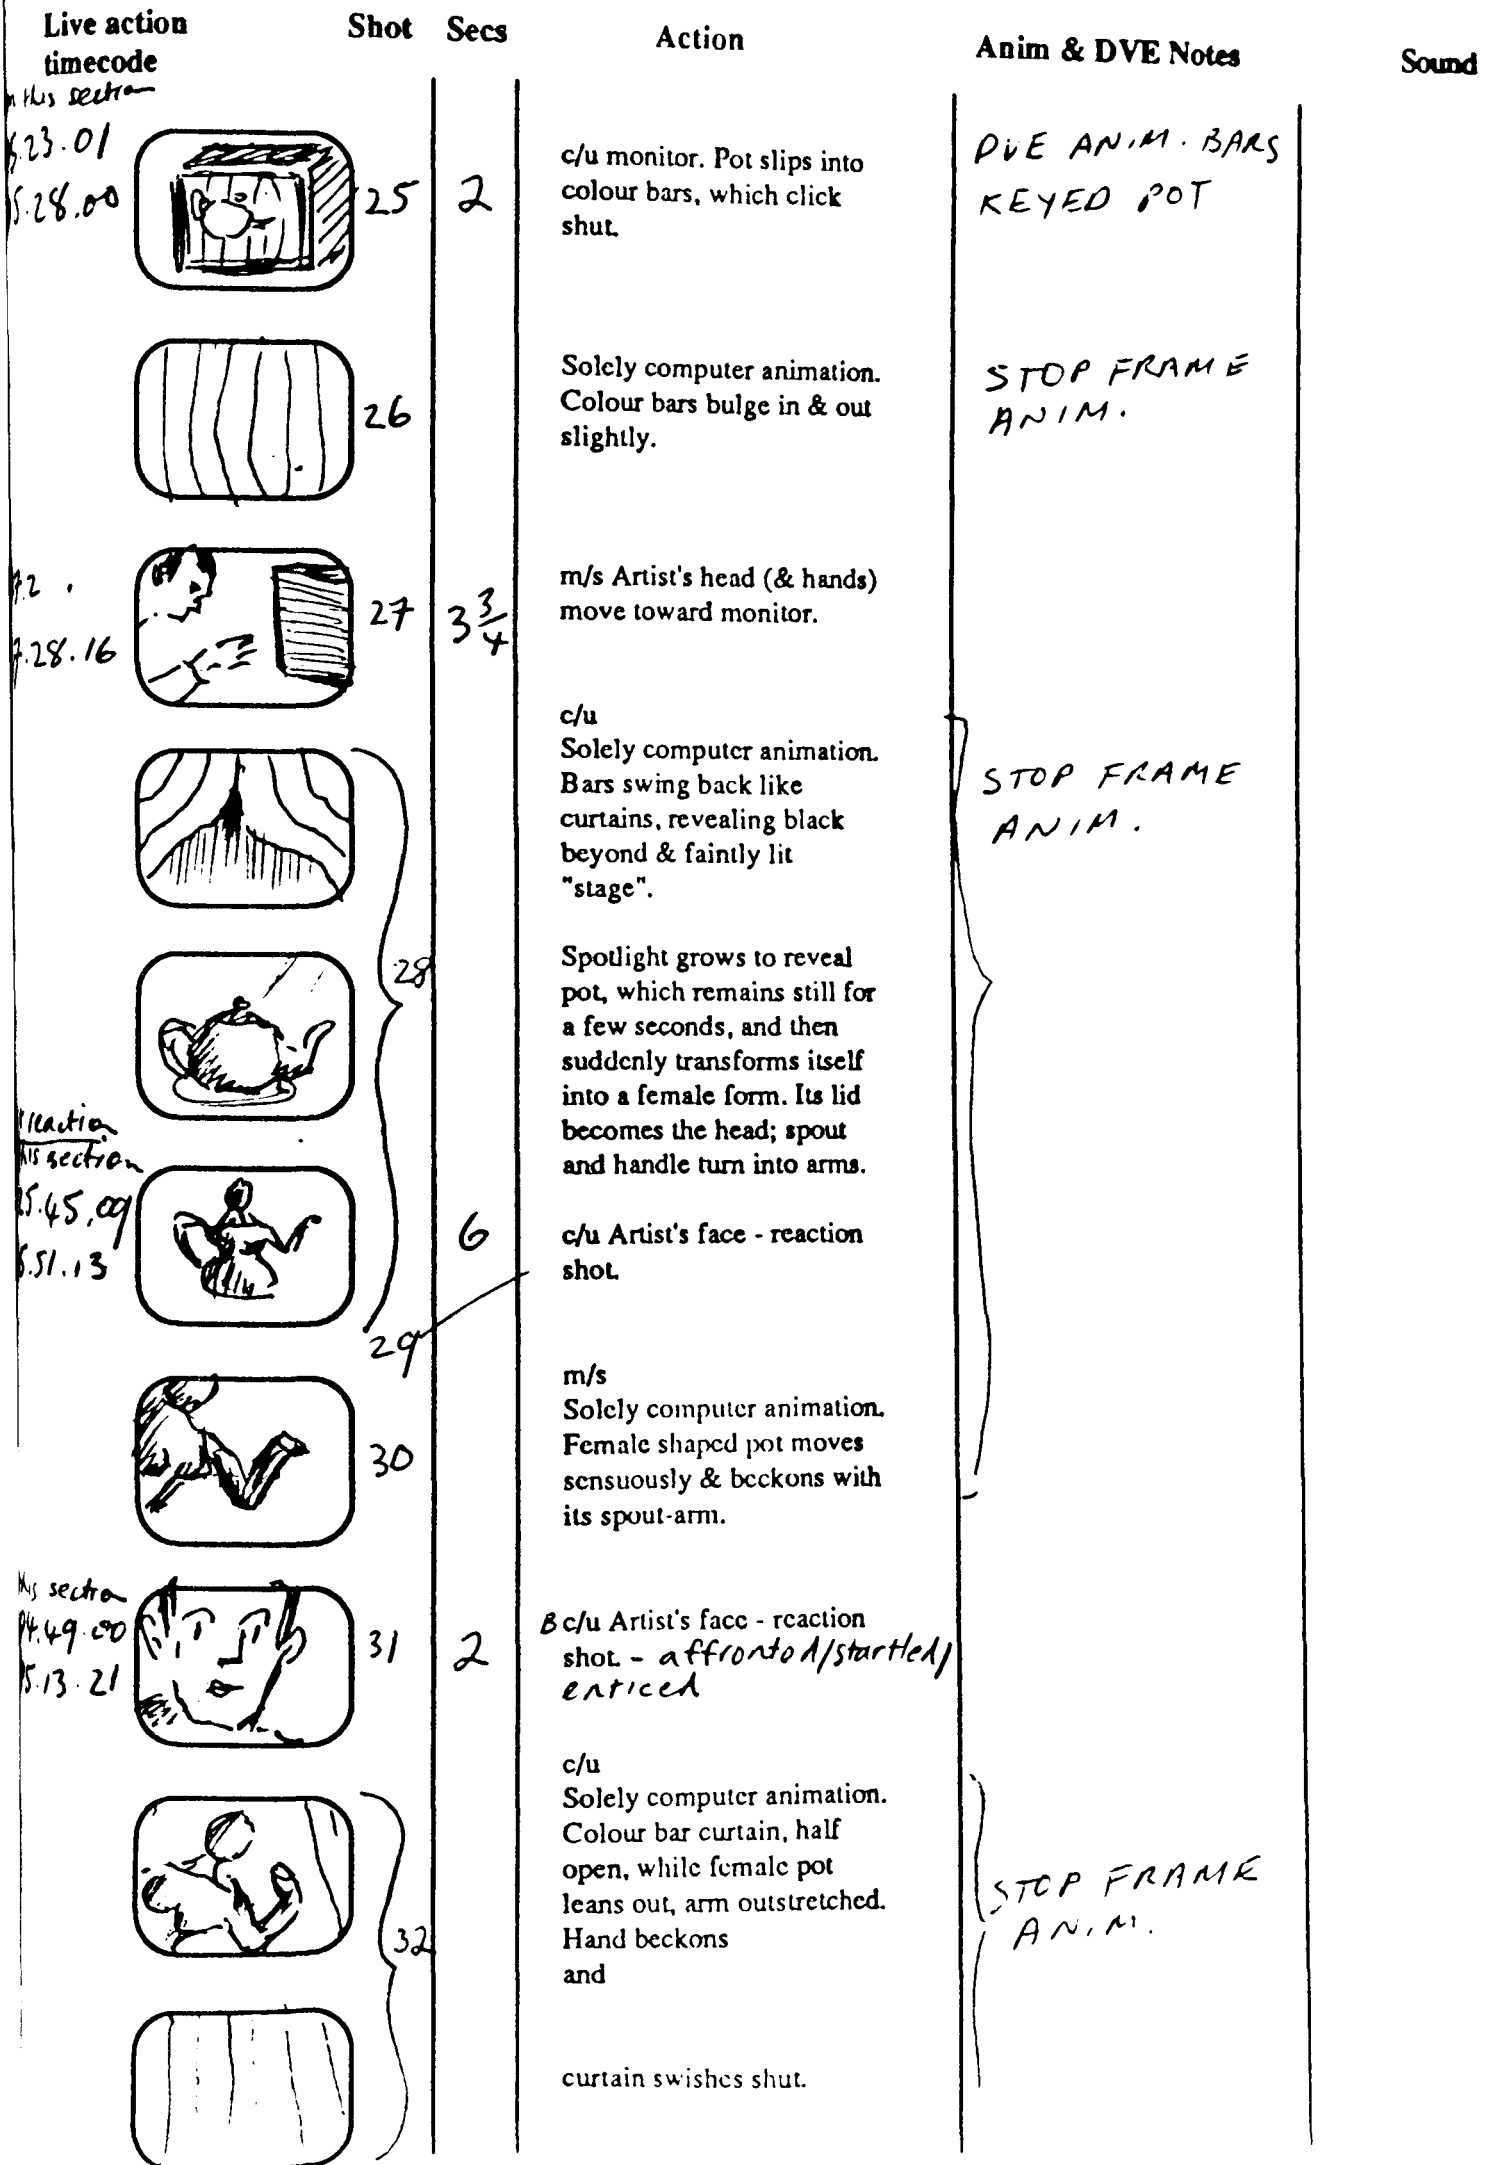 Live action
timecode
Shot
Secs
Action
Anim & DVE Notes
Sound
this section
.23.01
5.28.00
25
2
c/u monitor. Pot slips into
colour bars, which click
shut.
DVE ANIM. BARS
KEYED POT
26
Solely computer animation.
Colour bars bulge in & out
slightly.
STOP FRAME
ANIM.
.28.16
27
3 3/4
m/s Artist's head (& hands)
move toward monitor.
28
c/u
Solely computer animation.
Bars swing back like
curtains, revealing black
beyond & faintly lit
"stage".
STOP FRAME
ANIM.
Spotlight grows to reveal
pot, which remains still for
a few seconds, and then
suddenly transforms itself
into a female form. Its lid
becomes the head; spout
and handle turn into arms.
reaction
section
5.45.09
5.51.13
29
6
c/u Artist's face - reaction
shot.
30
m/s
Solely computer animation.
Female shaped pot moves
sensuously & beckons with
its spout-arm.
this section
4.49.00
5.13.21
31
2
B c/u Artist's face - reaction
shot. - affronted/startled/
enticed
32
c/u
Solely computer animation.
Colour bar curtain, half
open, while female pot
leans out, arm outstretched.
Hand beckons
and
STOP FRAME
ANIM.
curtain swishes shut.